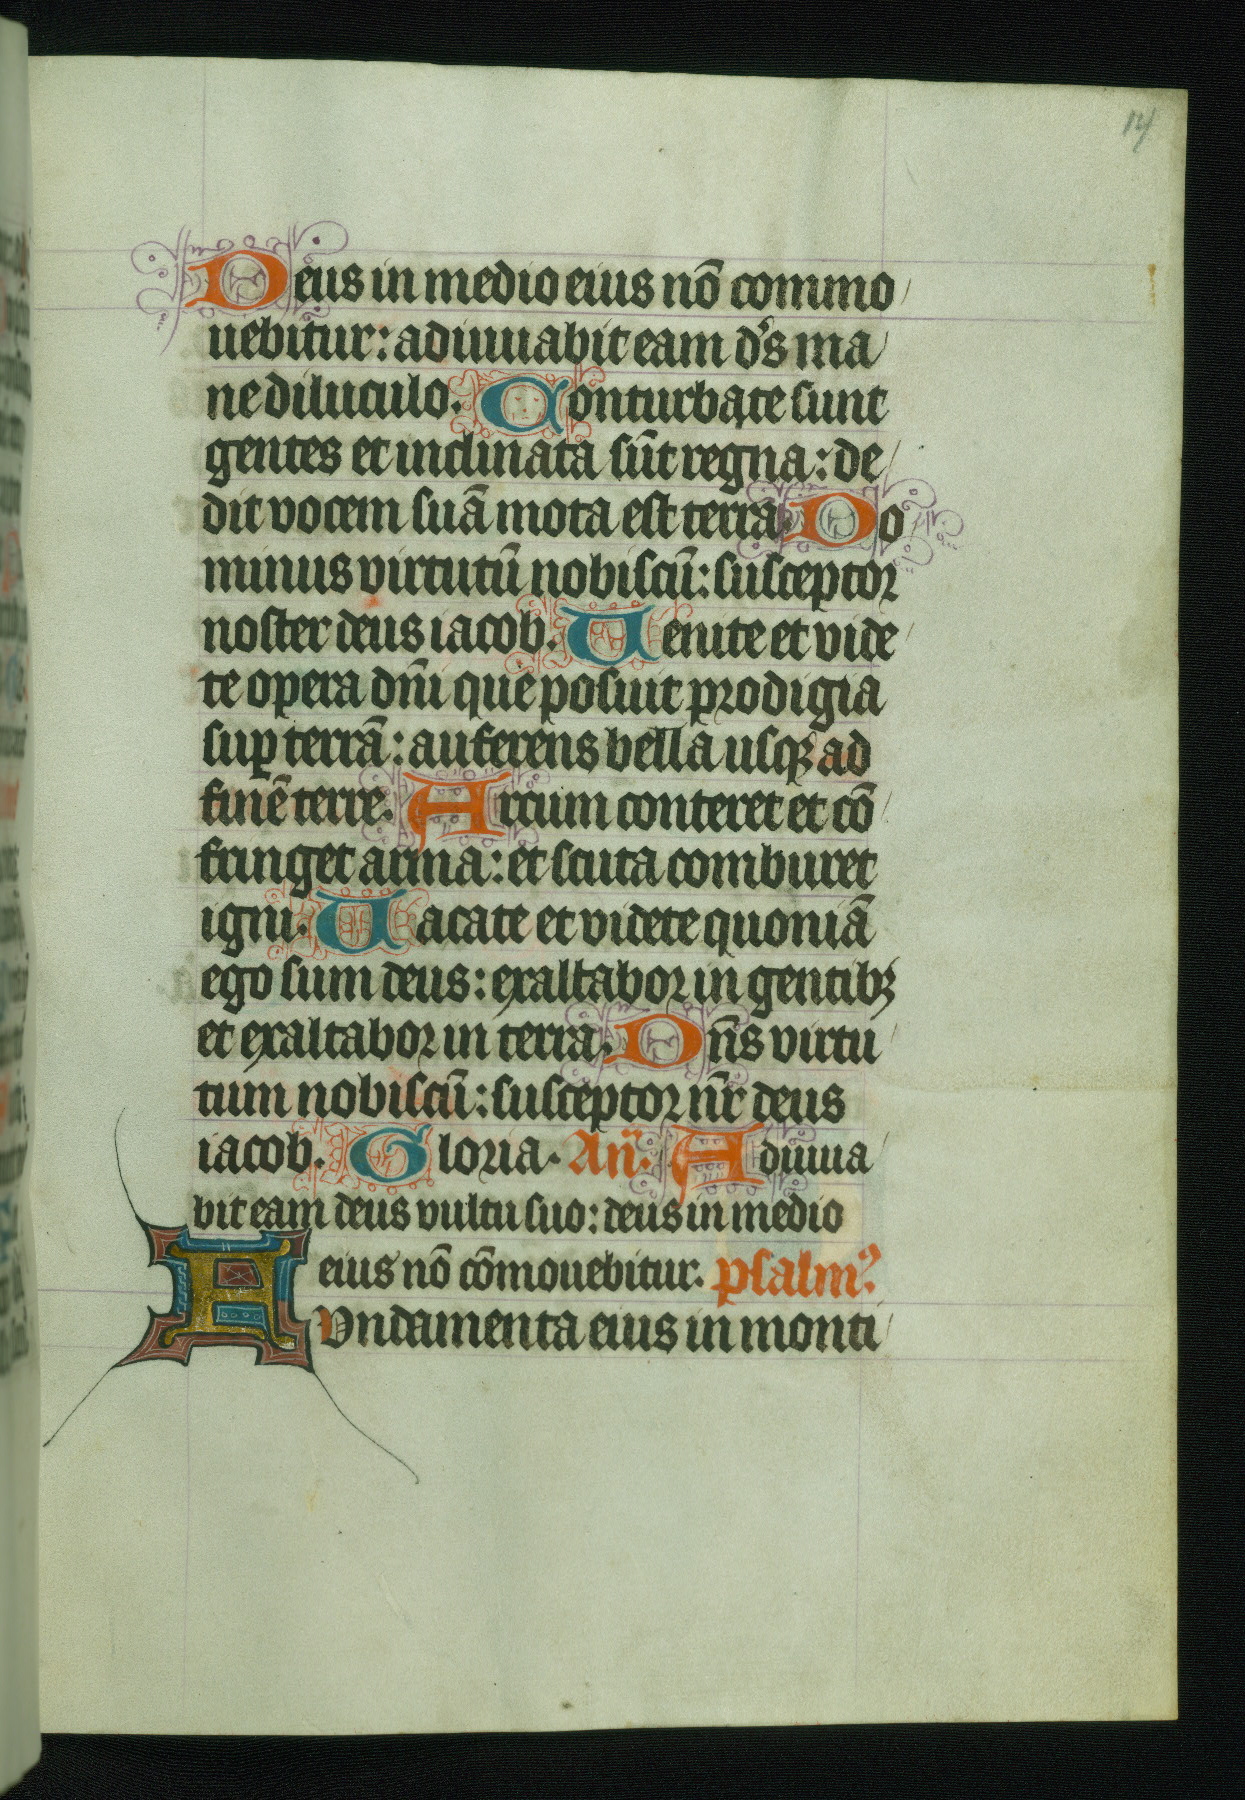 14
Deus in medio eius nō commo
uebitur: adiuuabit eam d's ma
ne diluculo. Conturbate sunt
gentes et inclinata sūt regna: de
dit vocem suā mota est terra. Do
minus virtutū nobiscū: susceptor
noster deus iacob. Uenite et vide
te opera dn̄i que posuit prodigia
sup terrā: auferens bella usqꝫ ad
finē terre. Arcum conteret et cō
fringet arma: et scuta comburet
igni. Uacate et videte quoniā
ego sum deus: exaltabor in gentibꝫ
et exaltabor in terra. Dn̄s virtu
tum nobiscū: susceptor nr̄ deus
iacob. Gloria. An̄. Adiuua
bit eam deus vultu suo: deus in medio
eius nō cōmouebitur. psalmꝰ.
A Vndamenta eius in monti